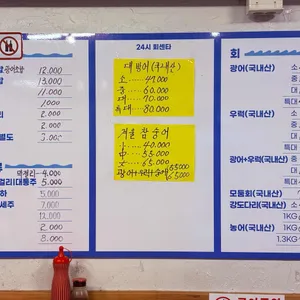 공기밥
12.000
11.000
1000
2.000
별도
3.000
막걸리 4.000
걸리(대통주 5.000
하 5.000
세주 7.000
12.000
2.000
8.000
24시 회센타
대방어(국내산)
소 - 49.000
중 - 60.000
대 - 70.000
특대 - 80.000
겨울 참숭어
小 40.000
中 55.000
大 65.000
광어+우럭+숭어 65.000
회
광어(국내산) 소
중
대
특대
우럭(국내산) 소
중
대
특대
광어+우럭(국내산)
대
특대
모듬회(국내산)
강도다리(국내산) 소
1KG
농어(국내산) 1KG
1.3KG